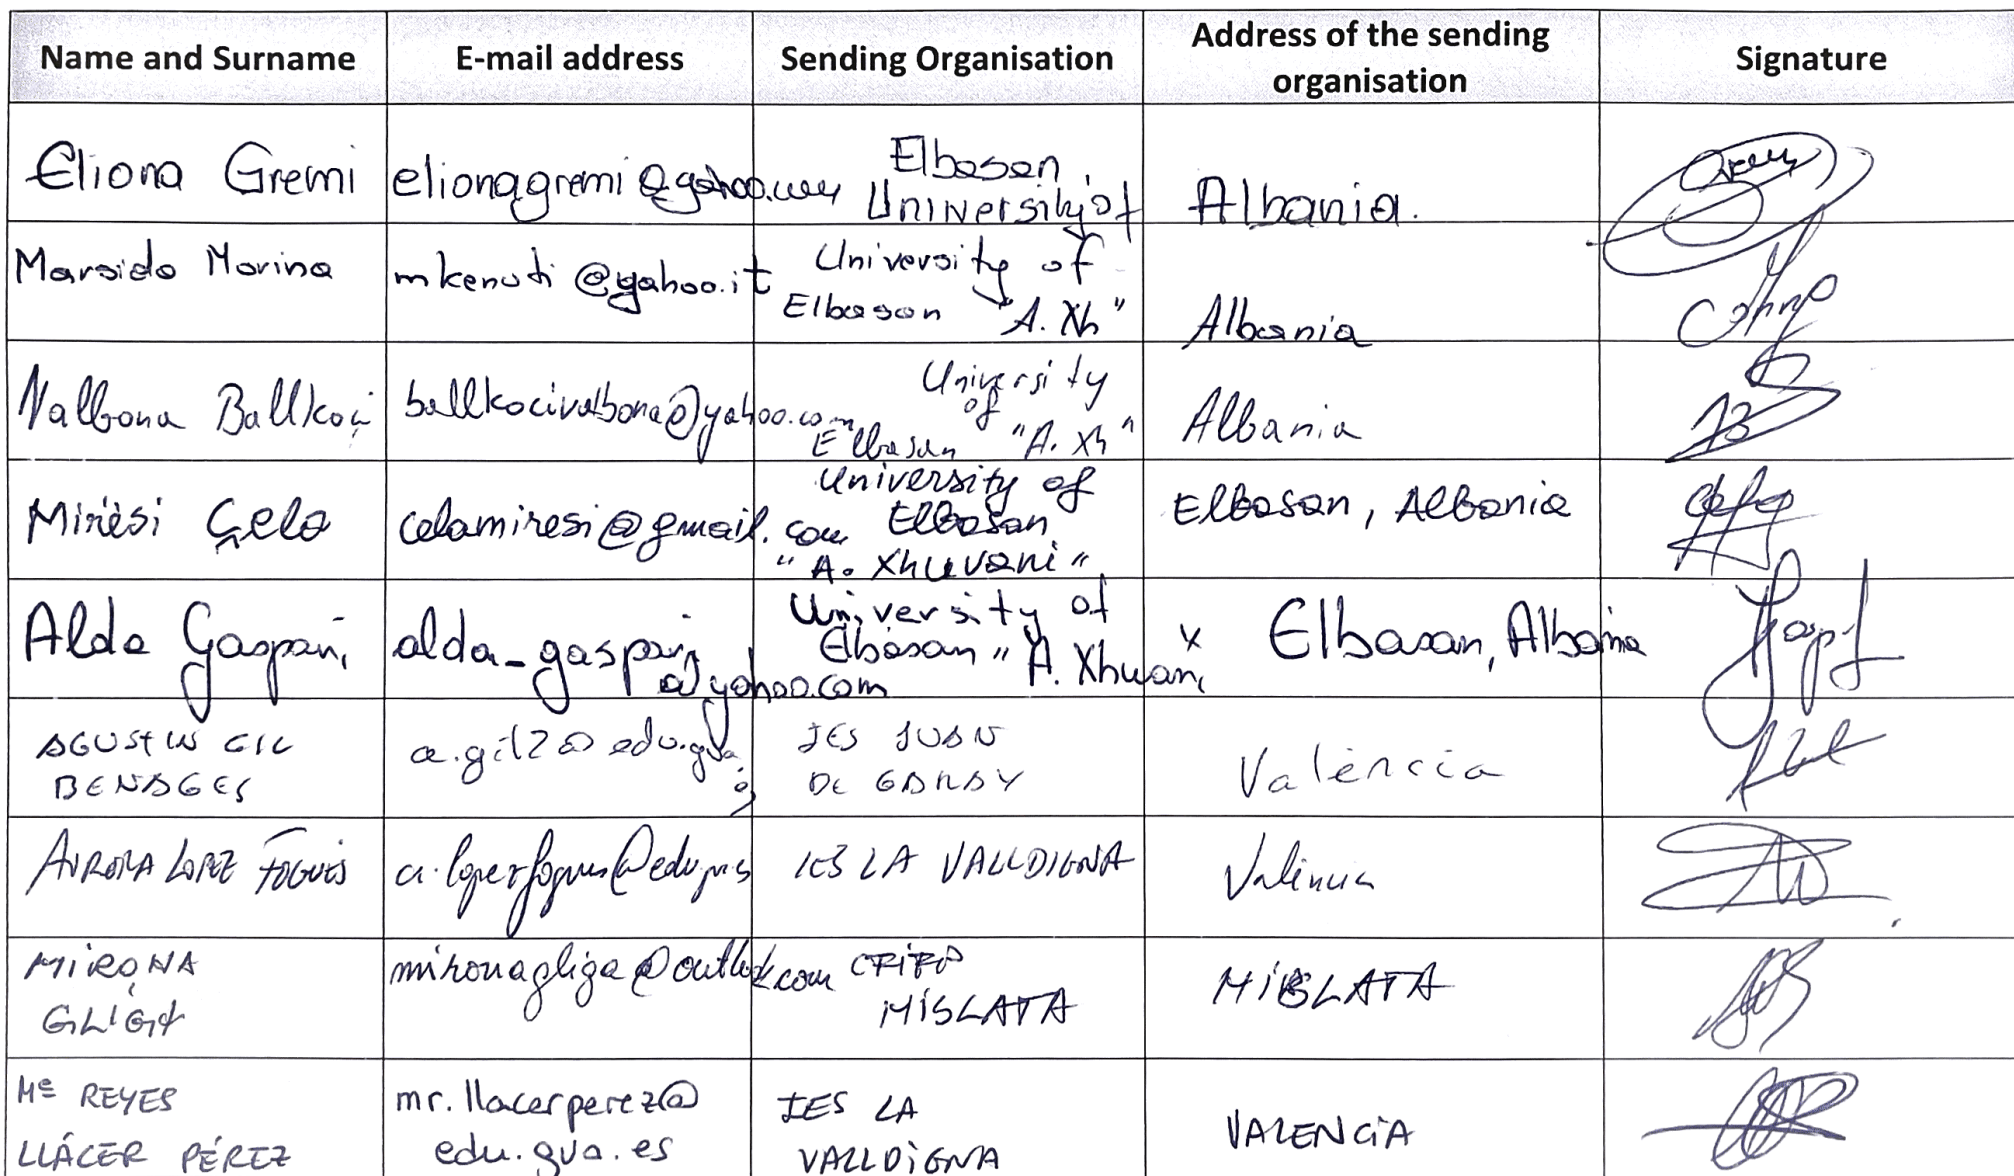 Name and Surname
E-mail address
Sending Organisation
Address of the sending
organisation
Signature
Eliona Gremi
elionagremi@yahoo.com
Elbasan
University of
Albania.
Marsida Morina
mkenuti@yahoo.it
University of
Elbasan "A. Xh"
Albania
Valbona Ballkoçi
ballkocivalbona@yahoo.com
University
of
Elbasan "A. Xh"
Albania
Mirësi Çela
celamiresi@gmail.com
University of
Elbasan
"A. Xhuvani"
Elbasan, Albania
Alda Gaspari
alda_gaspari
@yahoo.com
University of
Elbasan "A. Xhuvani
Elbasan, Albania
AGUSTIN GIL
BENAGES
a.gil2@edu.gva.
es
IES JUAN
DE GARAY
València
AURORA LOPEZ FOGUÉS
a.lopezfogues@edu.gva.es
IES LA VALLDIGNA
València
MIRONA
GLIGA
mironagliga@outlook.com
CFIFP
MISLATA
MISLATA
Mª REYES
LLÁCER PÉREZ
mr.llacerperez@
edu.gva.es
IES LA
VALLDIGNA
VALENCIA